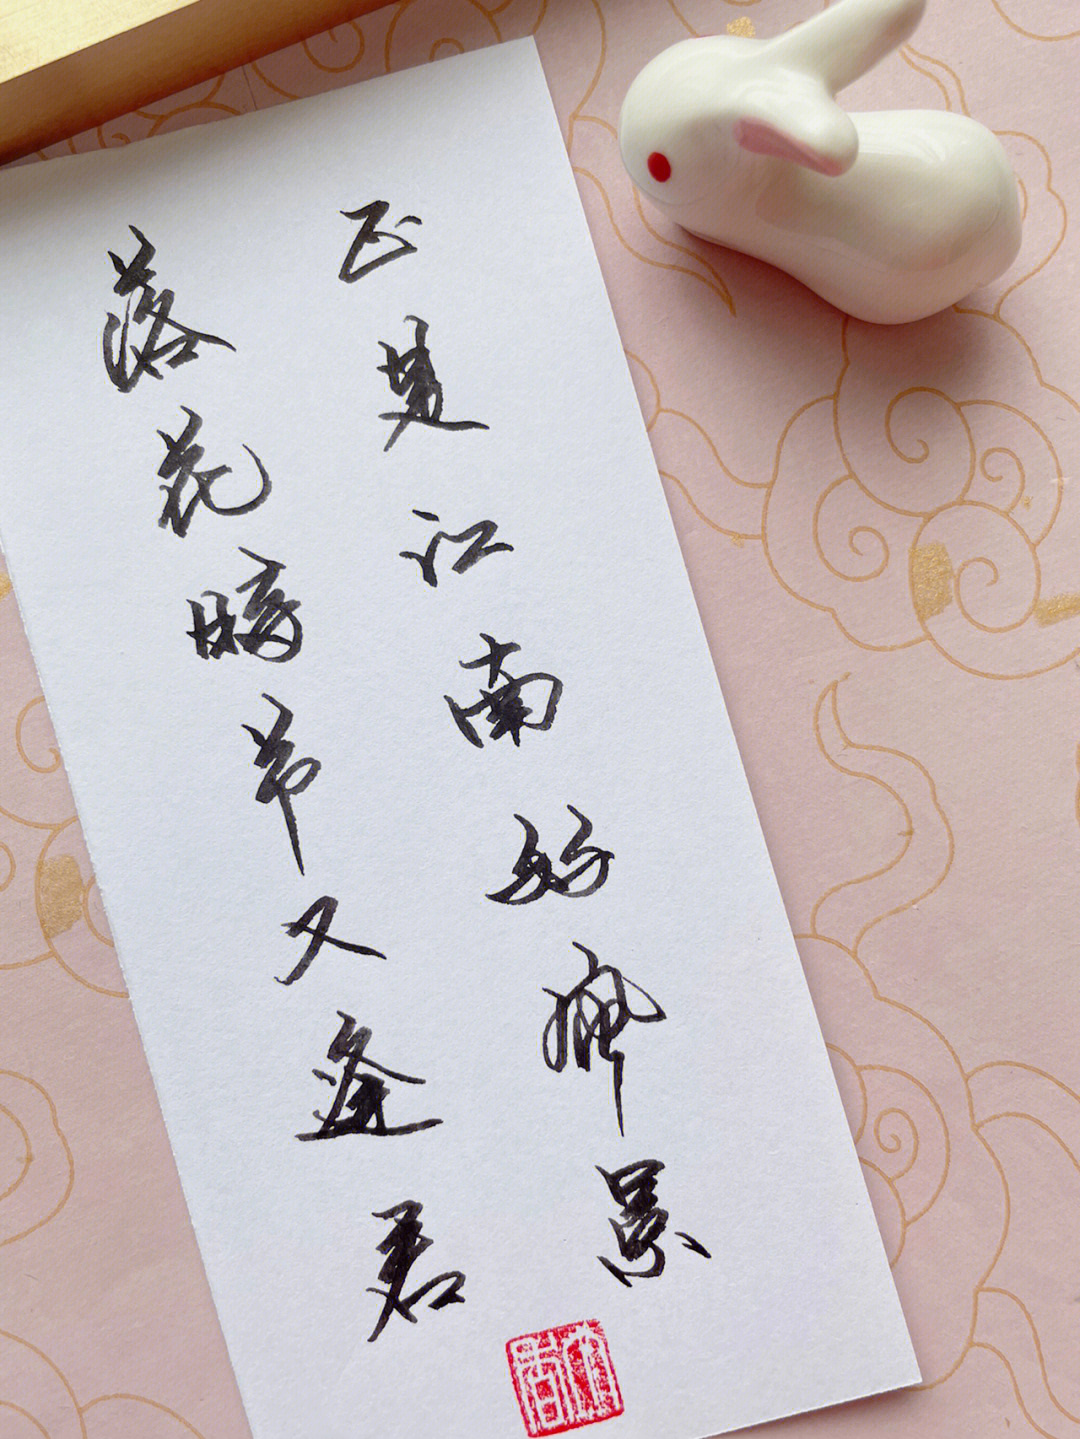 正是江南好風景
落花時节又逢君